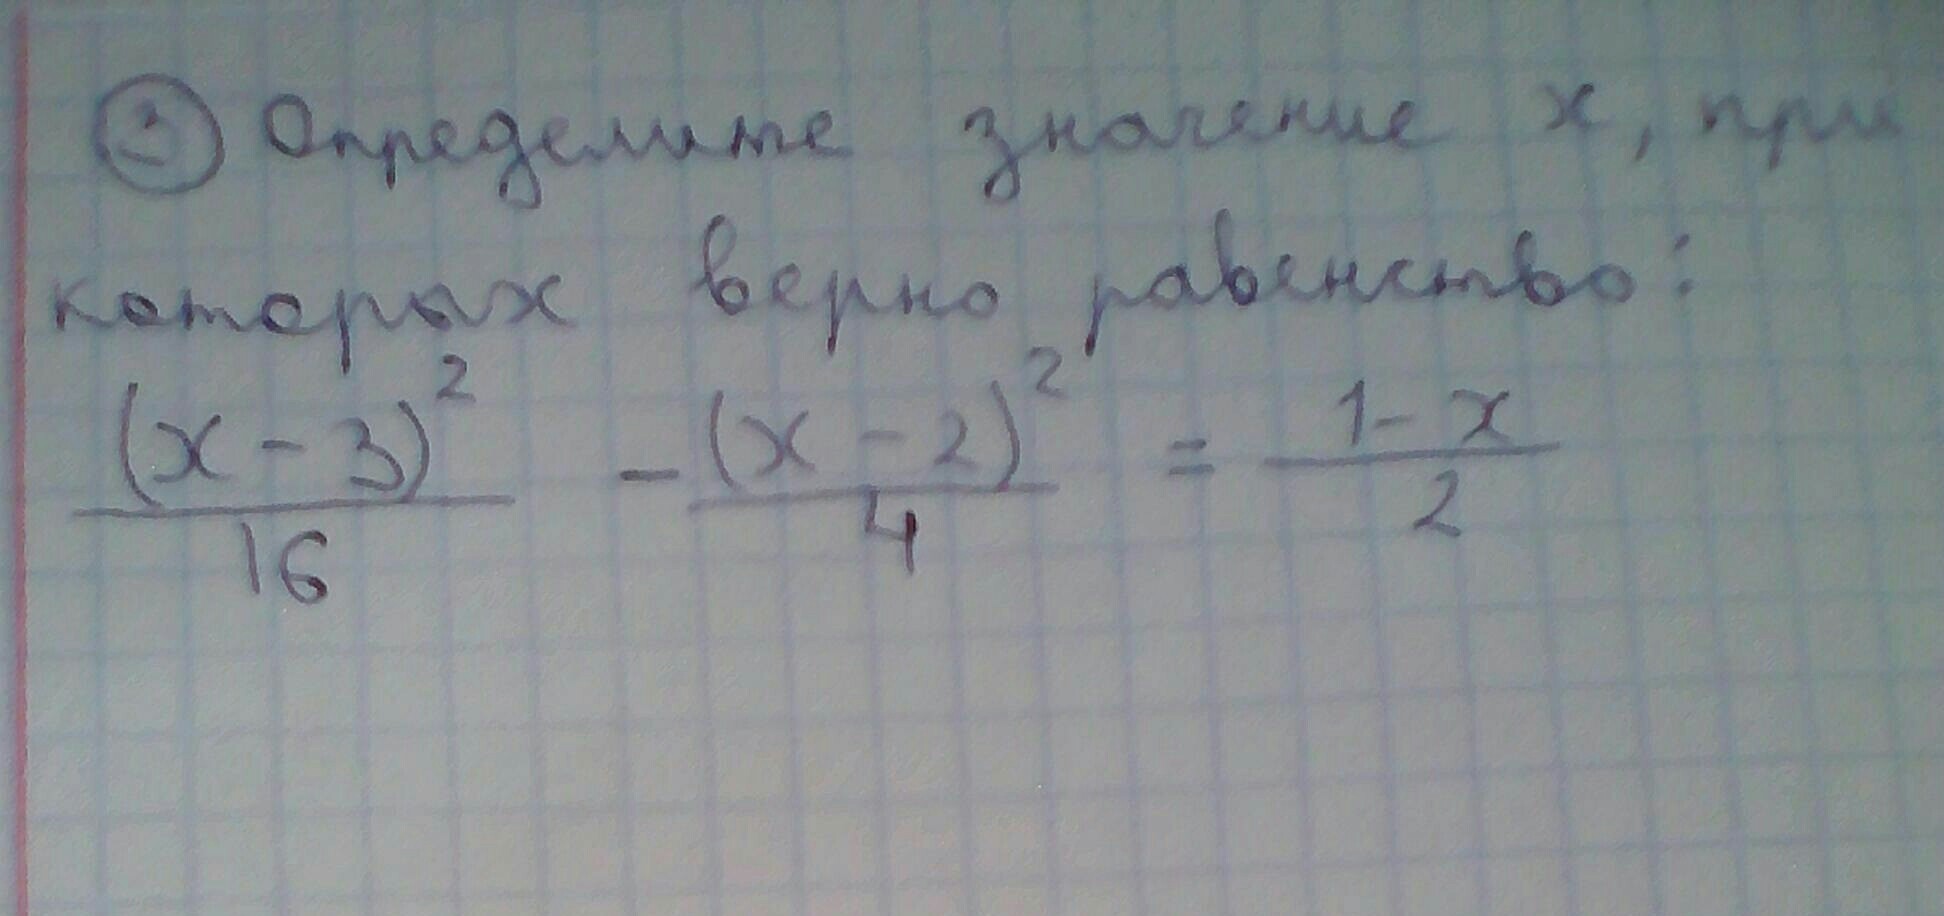 ③ Определите значение x, при
которых верно равенство:
(x - 3)² / 16 - (x - 2)² / 4 = 1 - x / 2